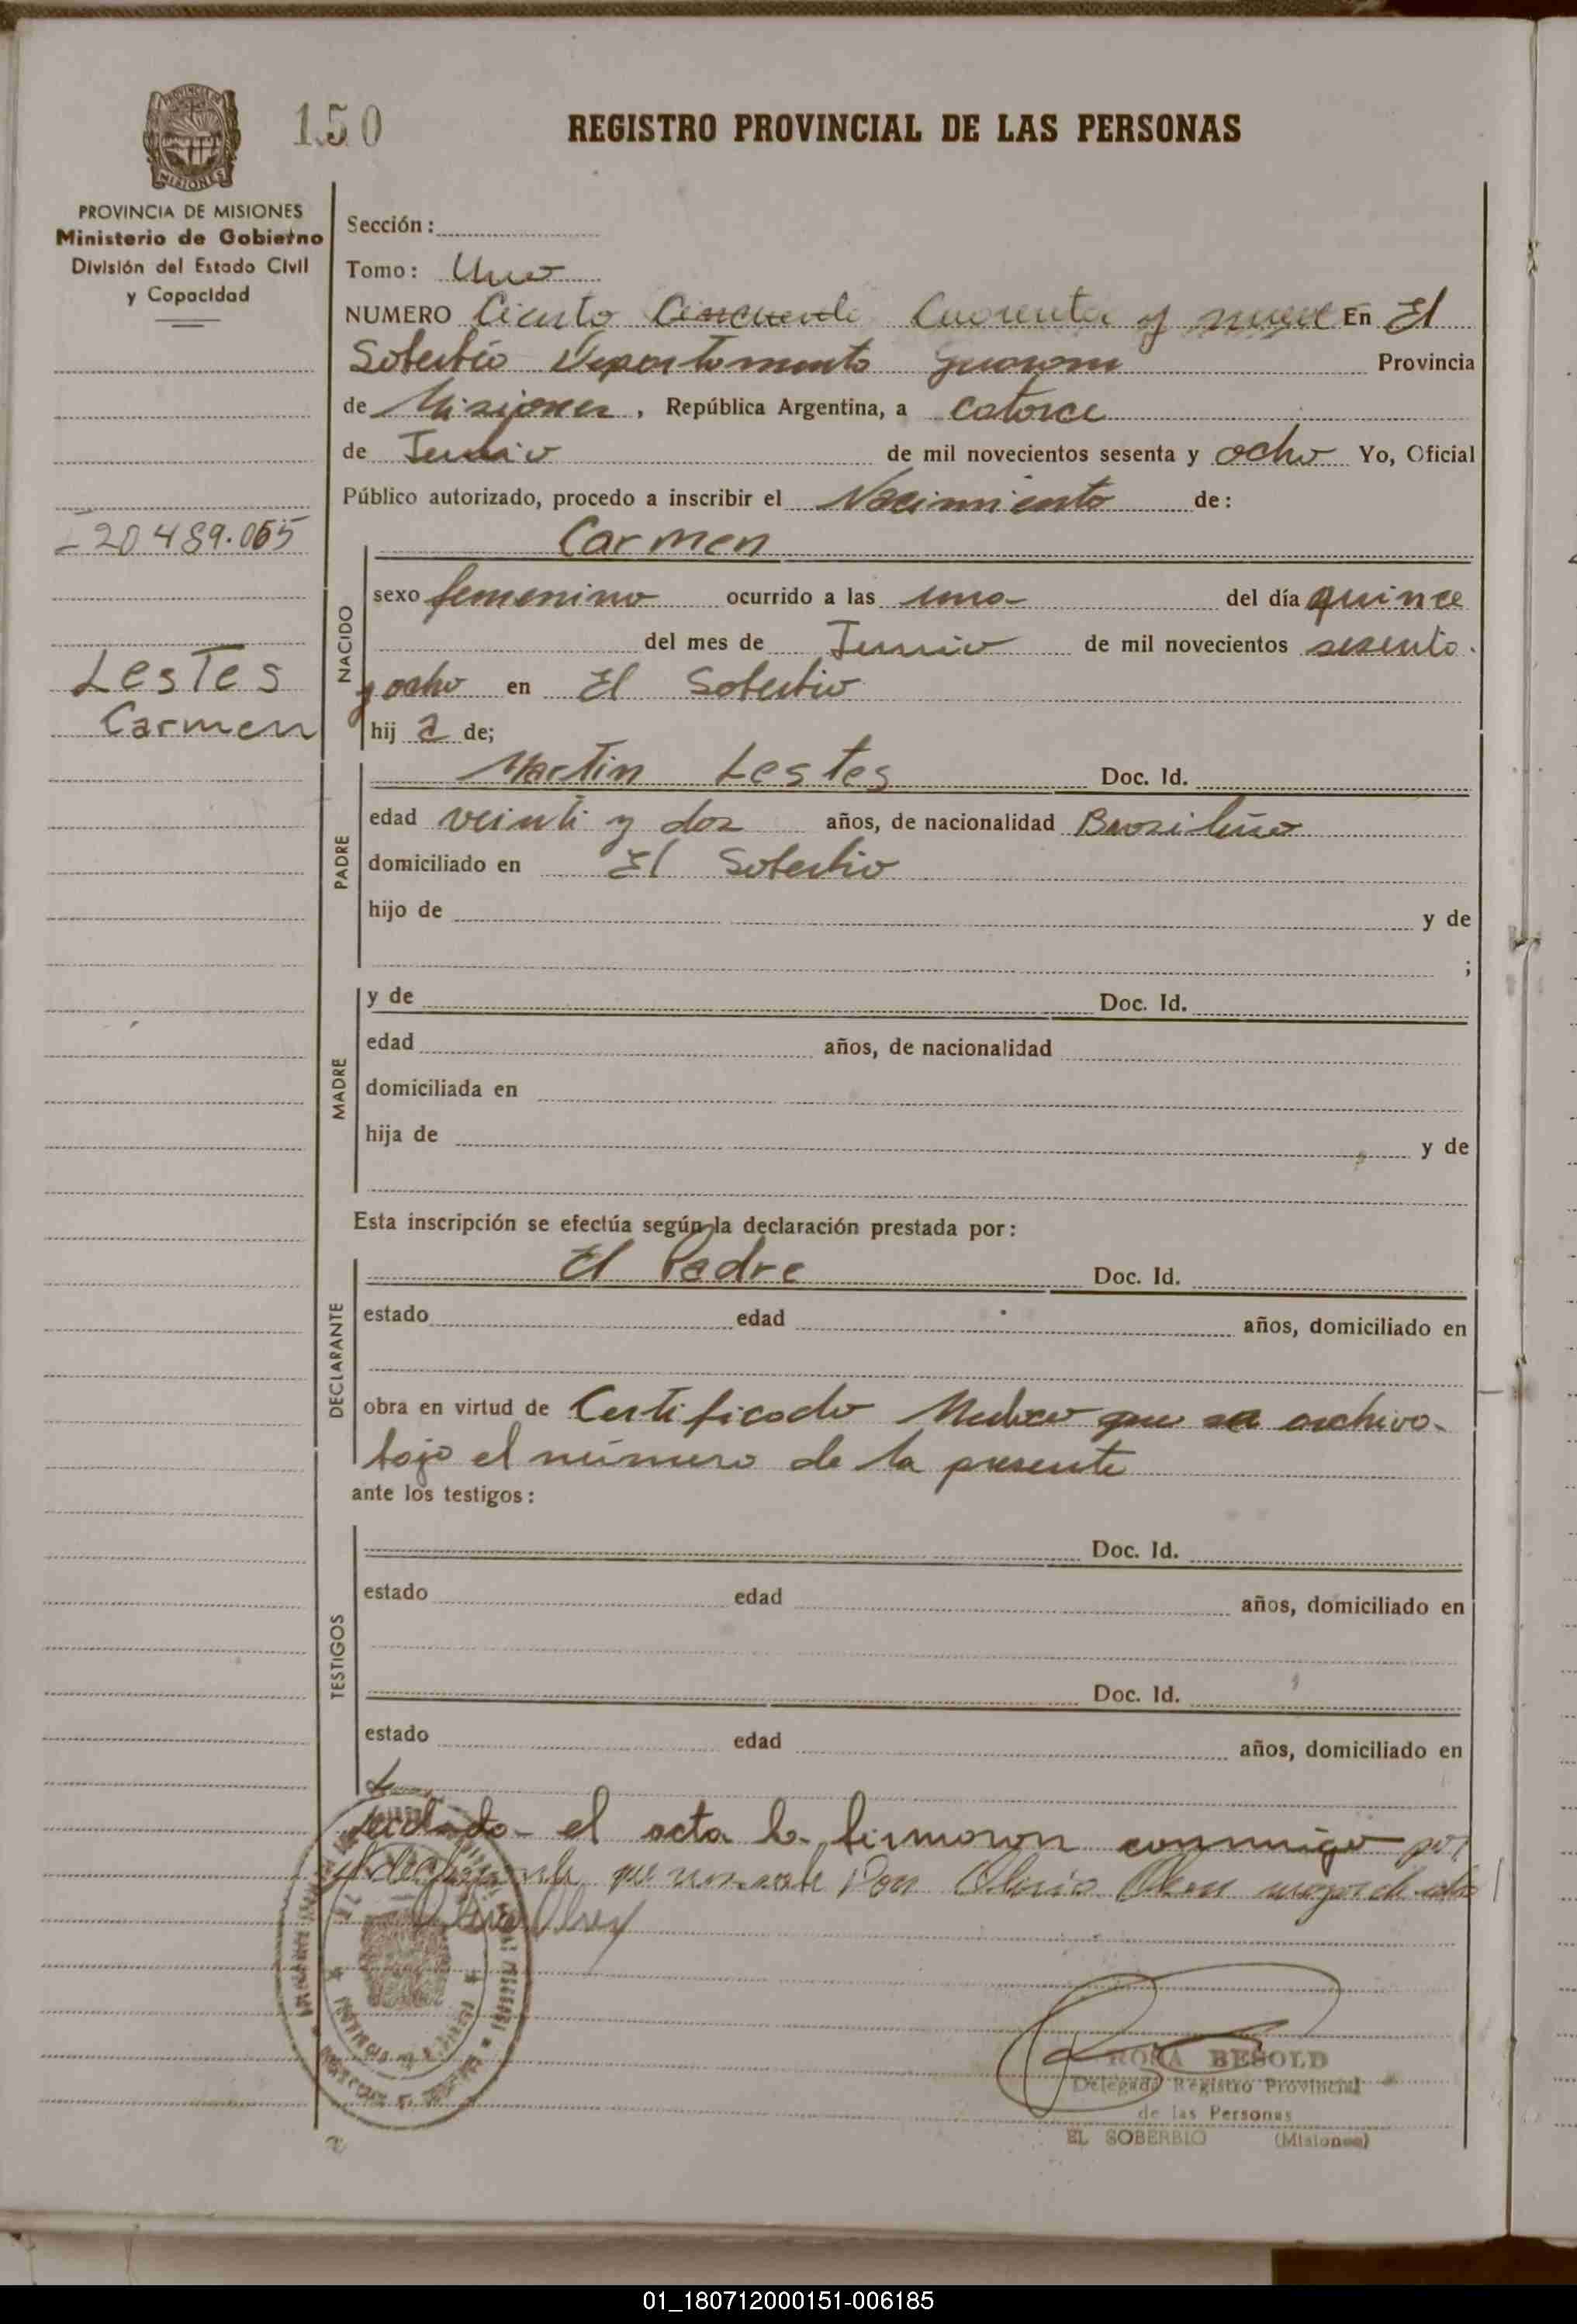 150
REGISTRO PROVINCIAL DE LAS PERSONAS
PROVINCIA DE MISIONES
Ministerio de Gobierno
División del Estado Civil
y Capacidad
Sección:
Tomo: Uno
NUMERO Ciento Cincuenta Cuarenta y nueve En El
Soberbio Departamento Guarani Provincia
de Misiones, República Argentina, a catorce
de Junio de mil novecientos sesenta y ocho Yo, Oficial
Público autorizado, procedo a inscribir el Nacimiento de:
20.489.065
Carmen
NACIDO
sexo femenino ocurrido a las una del día quince
del mes de Junio de mil novecientos sesenta
y ocho en El Soberbio
Lestes
Carmen
hij a de;
PADRE
Martin Lestes Doc. Id.
edad veinti y dos años, de nacionalidad Brasileño
domiciliado en El Soberbio
hijo de y de
;
MADRE
y de Doc. Id.
edad años, de nacionalidad
domiciliada en
hija de y de
Esta inscripción se efectúa según la declaración prestada por:
DECLARANTE
El Padre Doc. Id.
estado edad años, domiciliado en
obra en virtud de Certificado Medico que se archiva
bajo el número de la presente
ante los testigos:
TESTIGOS
Doc. Id.
estado edad años, domiciliado en
Doc. Id.
estado edad años, domiciliado en
el acta la firmaron conmigo por
que no sabe Don mayor de
ROSA BESOLD
Delegada Registro Provincial
de las Personas
EL SOBERBIO (Misiones)
01_180712000151-006185